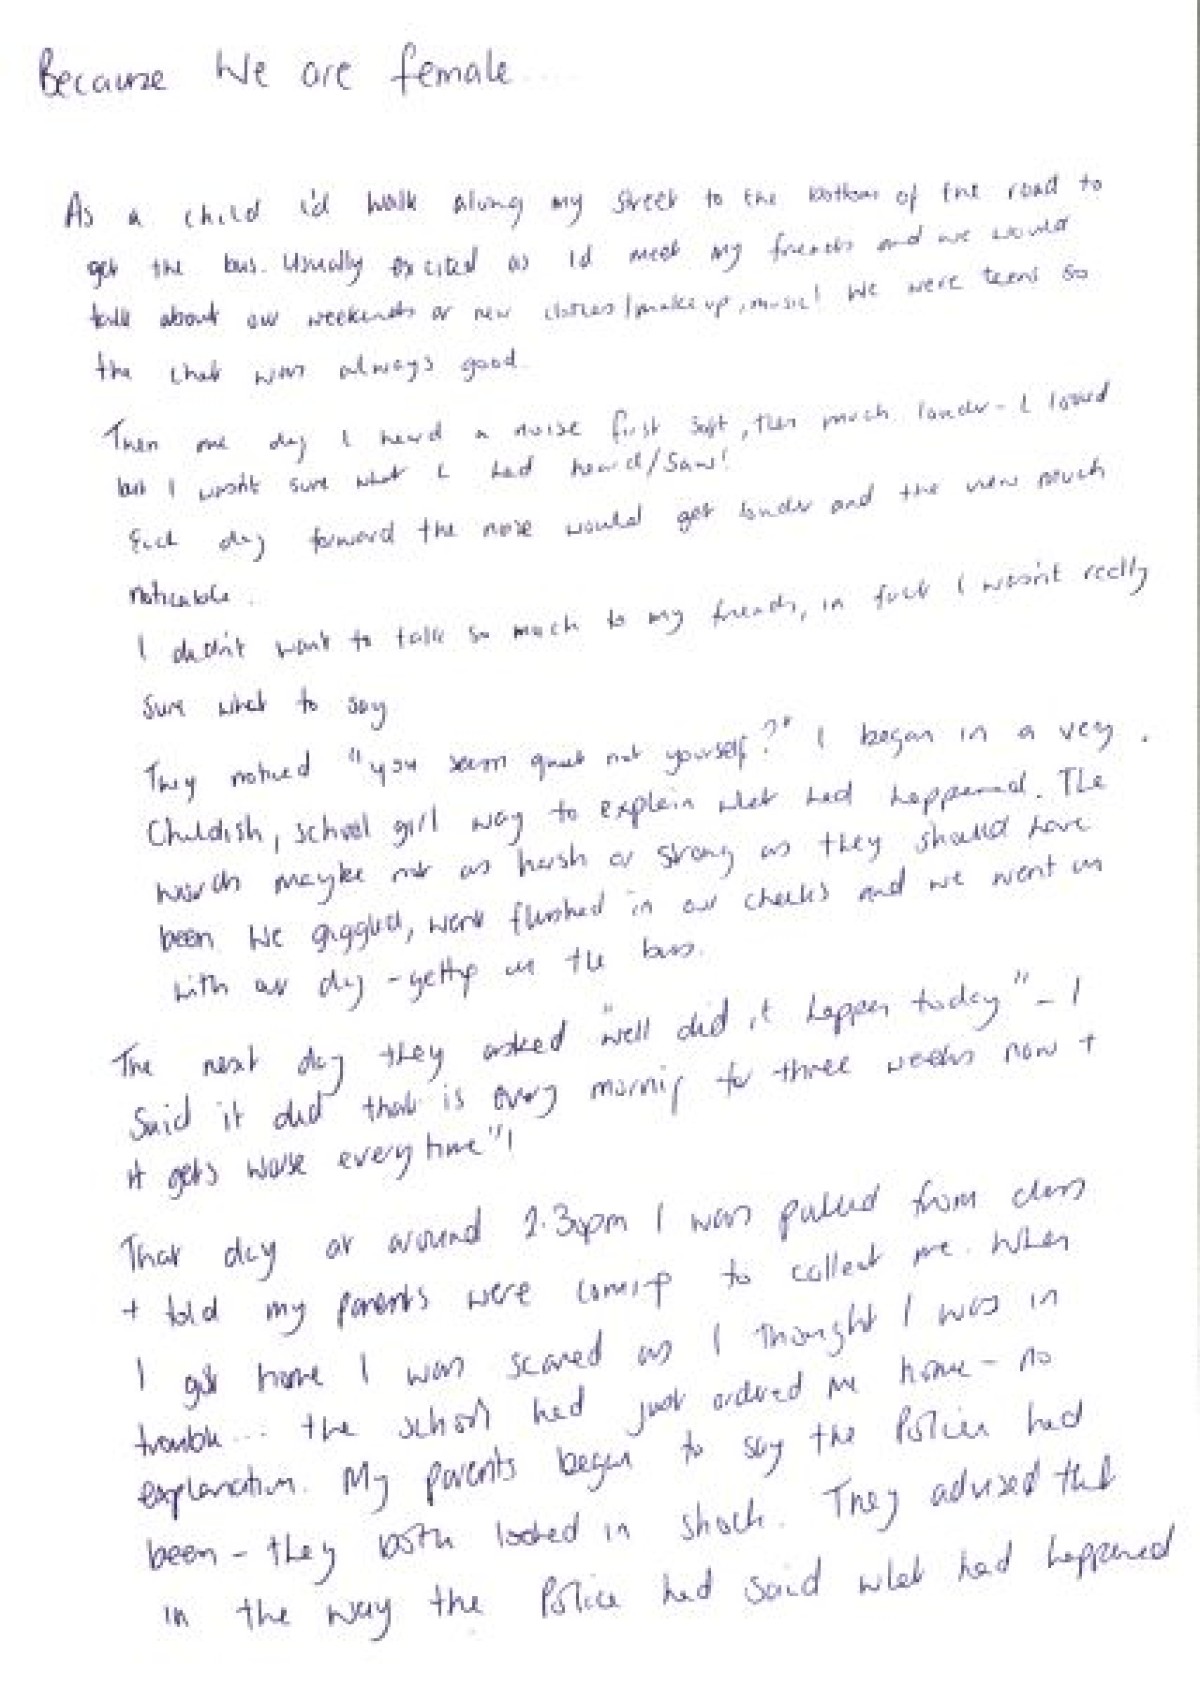 Because We are female....
As a child i'd walk along my street to the bottom of the road to
get the bus. Usually excited as id meet my friends and we would
talk about our weekends or new clothes/makeup, music! We were teens so
the chat was always good.
Then one day I heard a noise first soft, then much louder - I looked
but I wasn't sure what I had heard/saw!
Each day forward the noise would get louder and the view much
noticable.
I didn't want to talk so much to my friends, in fact I wasn't really
sure what to say
They noticed "you seem quiet not yourself?" I began in a very
childish, school girl way to explain what had happened. The
words maybe not as harsh or strong as they should have
been. We giggled, were flushed in our cheeks and we went on
with our day - getting on the bus.
The next day they asked "well did it happen today" - I
said it did that is every morning for three weeks now +
it gets worse every time"!
That day at around 2.30pm I was pulled from class
+ told my parents were coming to collect me. When
I got home I was scared as I thought I was in
trouble... the school had just ordered me home - no
explanation. My parents began to say the Police had
been - they both looked in shock. They advised that
in the way the Police had said what had happened